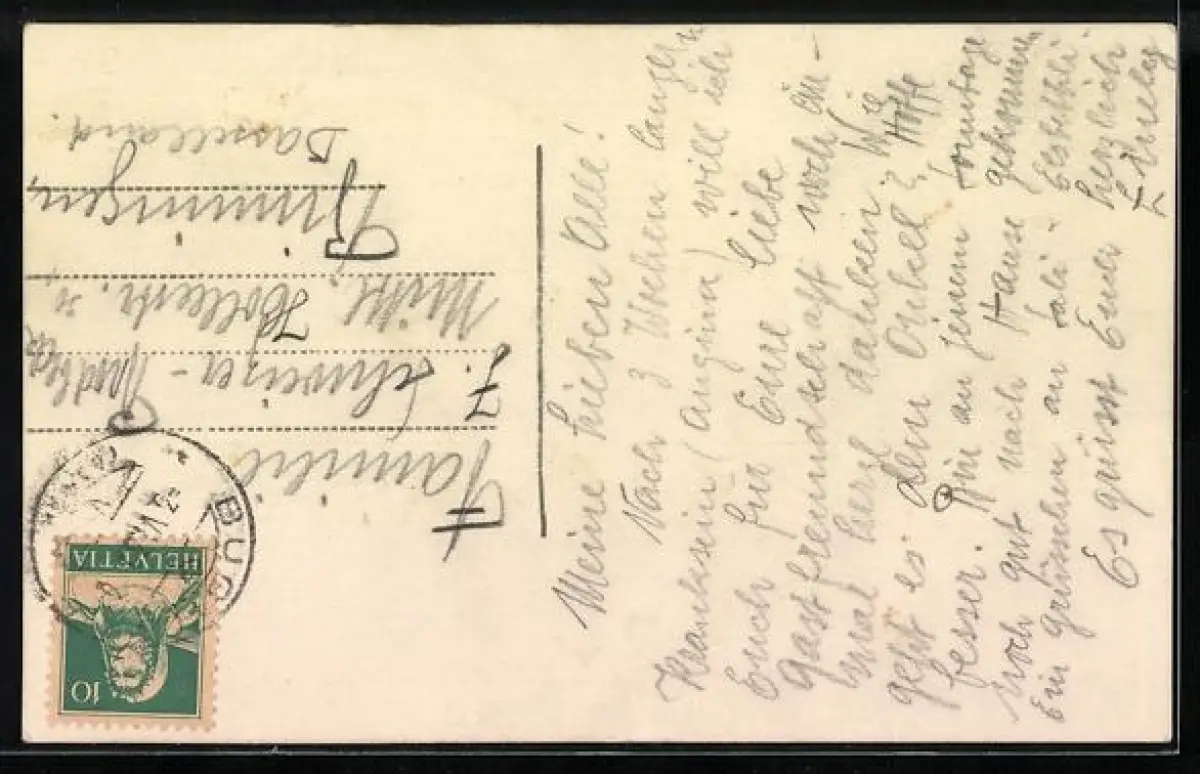 Meine Lieben Alle!
Nach 3 Wochen langem
Kranksein (Angina) will ich
Euch für Eure liebe
Gastfreundschaft noch ein-
mal herzl danken. Wie
geht es dem Onkel? Hoffe
besser. Bin an jenem Sonntage
noch gut nach Hause gekommen
Ein grüsschen an
herzlich
Es grüsst Euch
Familie
J. Schweizer-
Mittl. Hollestr.
Binningen
Baselland.
HELVETIA
10